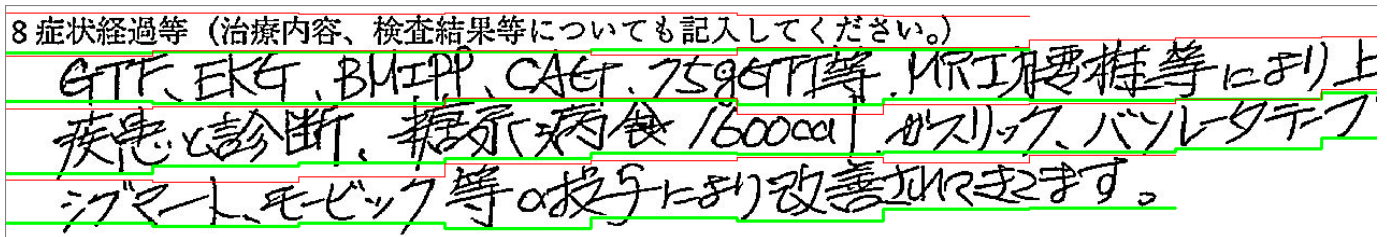 8 症状経過等 (治療内容、検査結果等についても記入してください。)
GTF、EKG、BMIPP、CAG、75gGTT等、MRI腰椎等により上
疾患と診断、糖尿病食1600cal、ガスリック、バソレータテープ
シグマート、モービック等の投与により改善されてきてます。